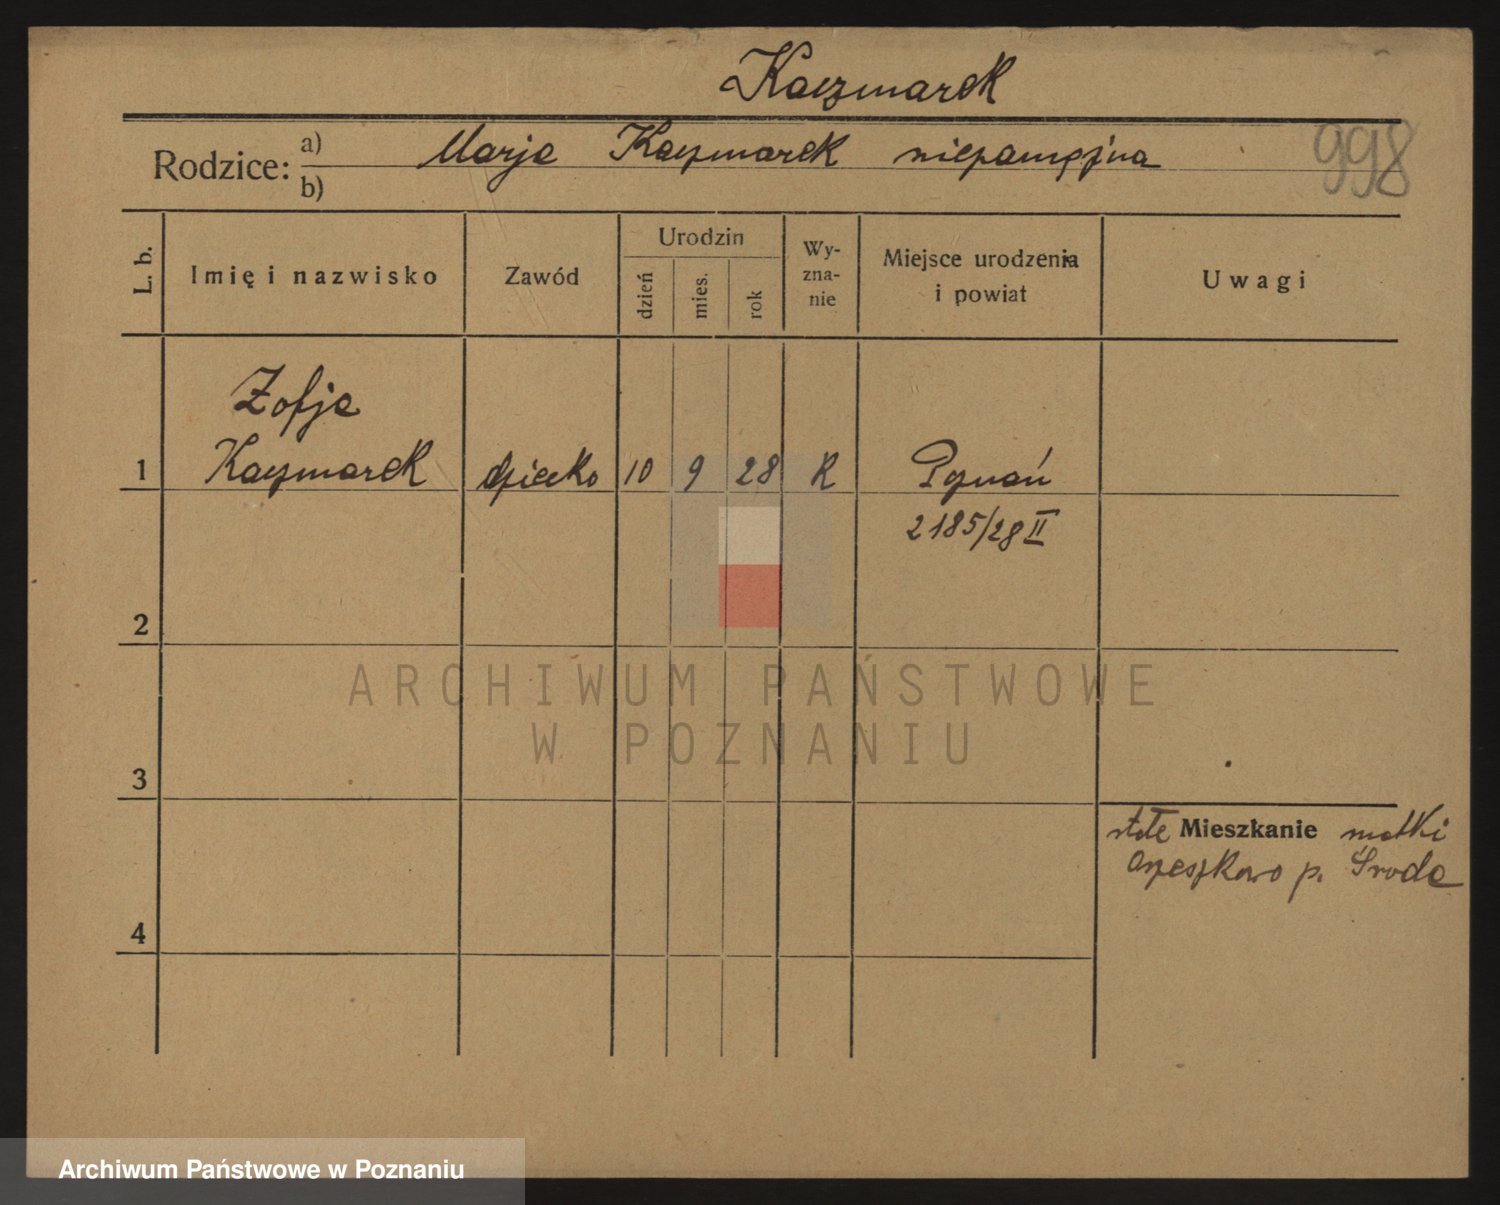 Kaczmarek
998
Rodzice: a) Marja Kaczmarek niezamężna
b)
L. b. Imię i nazwisko Zawód Urodzin dzień mies. rok Wy-zna-nie Miejsce urodzenia i powiat Uwagi
Zofja
1 Kaczmarek dziecko 10 9 28 R Poznań
2185/28 II
2
ARCHIWUM PAŃSTWOWE
W POZNANIU
3
stałe Mieszkanie matki
p. Środa
4
Archiwum Państwowe w Poznaniu